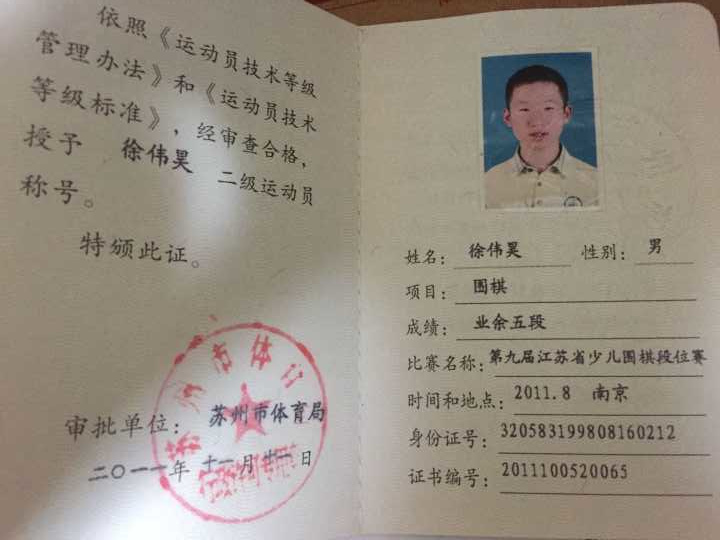 依照《运动员技术等级
管理办法》和《运动员技术
等级标准》，经审查合格，
授予 徐伟昊 二级运动员
称号。
特颁此证。
审批单位： 苏州市体育局
二〇一一年十一月廿一日
姓名： 徐伟昊 性别： 男
项目： 围棋
成绩： 业余五段
比赛名称： 第九届江苏省少儿围棋段位赛
时间和地点： 2011.8 南京
身份证号： 320583199808160212
证书编号： 2011100520065